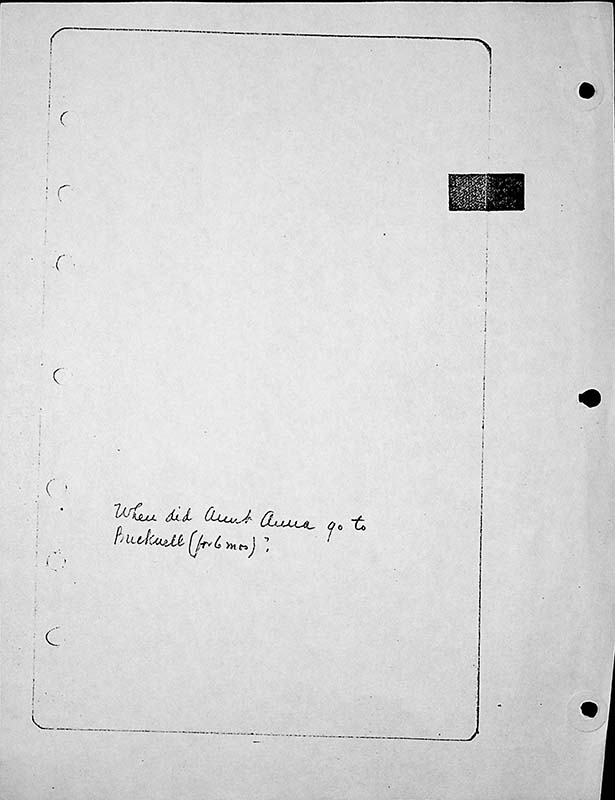 When did Aunt Anna go to
Bucknell (for 6 mos)?